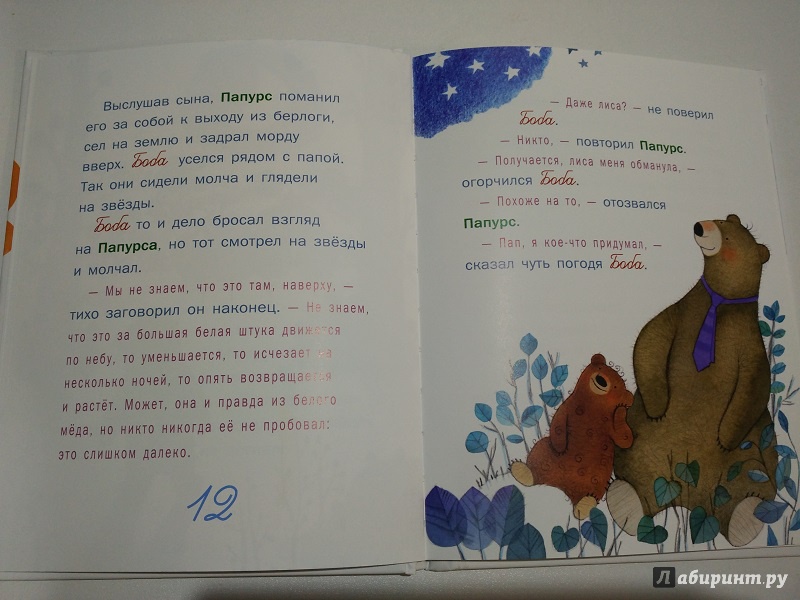 Выслушав сына, Папурс поманил
его за собой к выходу из берлоги,
сел на землю и задрал морду
вверх. Боба уселся рядом с папой.
Так они сидели молча и глядели
на звёзды.
Боба то и дело бросал взгляд
на Папурса, но тот смотрел на звёзды
и молчал.
— Мы не знаем, что это там, наверху, —
тихо заговорил он наконец. — Не знаем,
что это за большая белая штука движется
по небу, то уменьшается, то исчезает на
несколько ночей, то опять возвращается
и растёт. Может, она и правда из белого
мёда, но никто никогда её не пробовал:
это слишком далеко.
12
— Даже лиса? — не поверил
Боба.
— Никто, — повторил Папурс.
— Получается, лиса меня обманула, —
огорчился Боба.
— Похоже на то, — отозвался
Папурс.
— Пап, я кое-что придумал, —
сказал чуть погодя Боба.
Лабиринт.ру